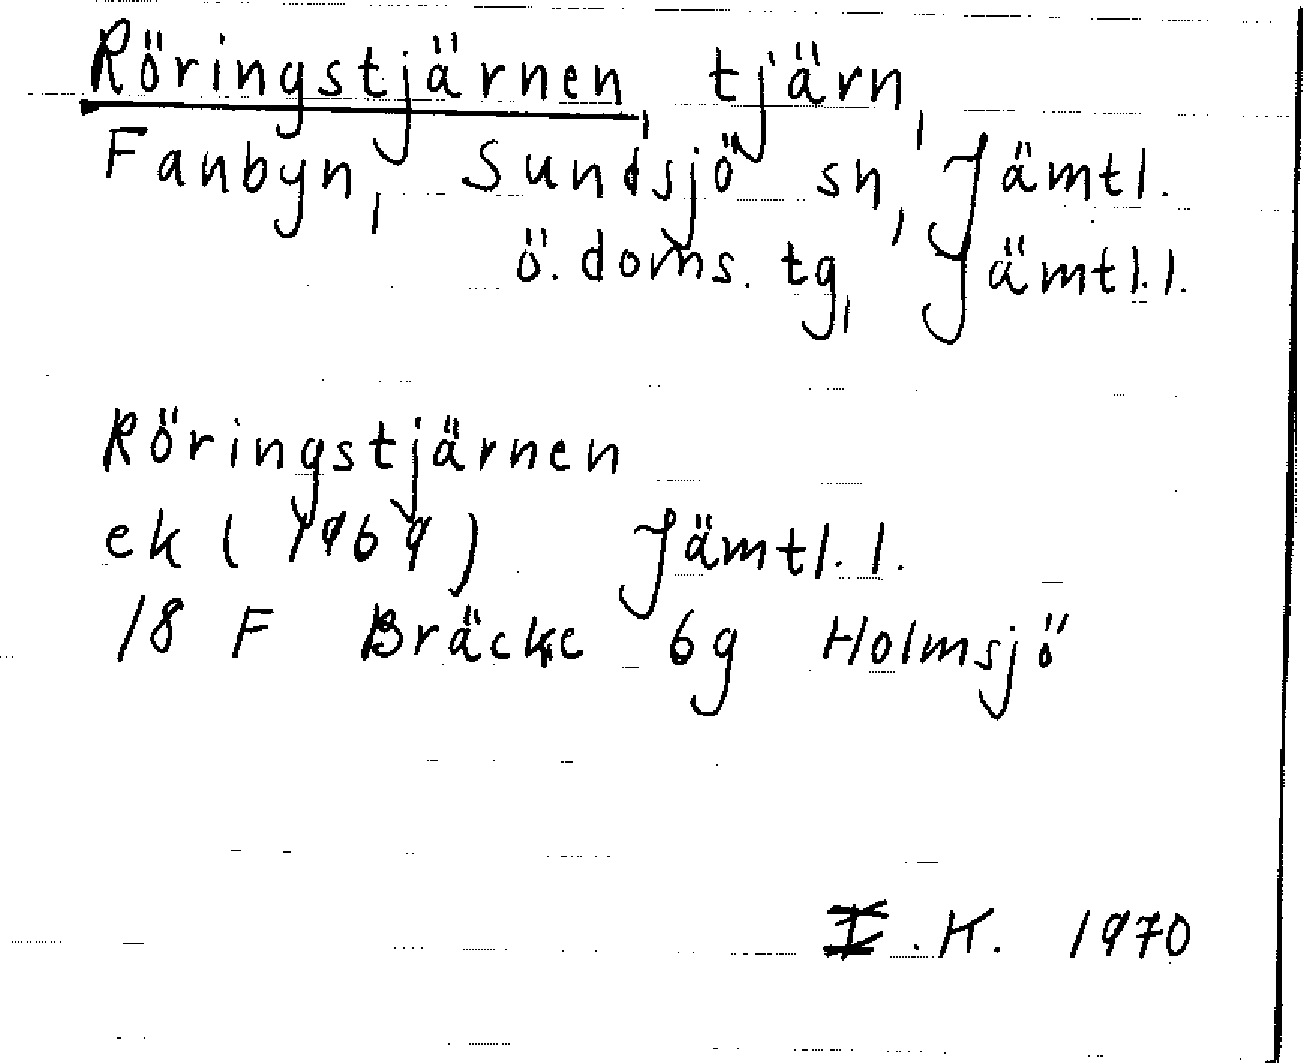 Röringstjärnen, tjärn,
Fanbyn, Sundsjö sn, Jämtl.
ö. doms. tg, Jämtl.l.
Röringstjärnen
ek (1969) Jämtl.l.
18 F Bräcke 6g Holmsjö
I.K. 1970